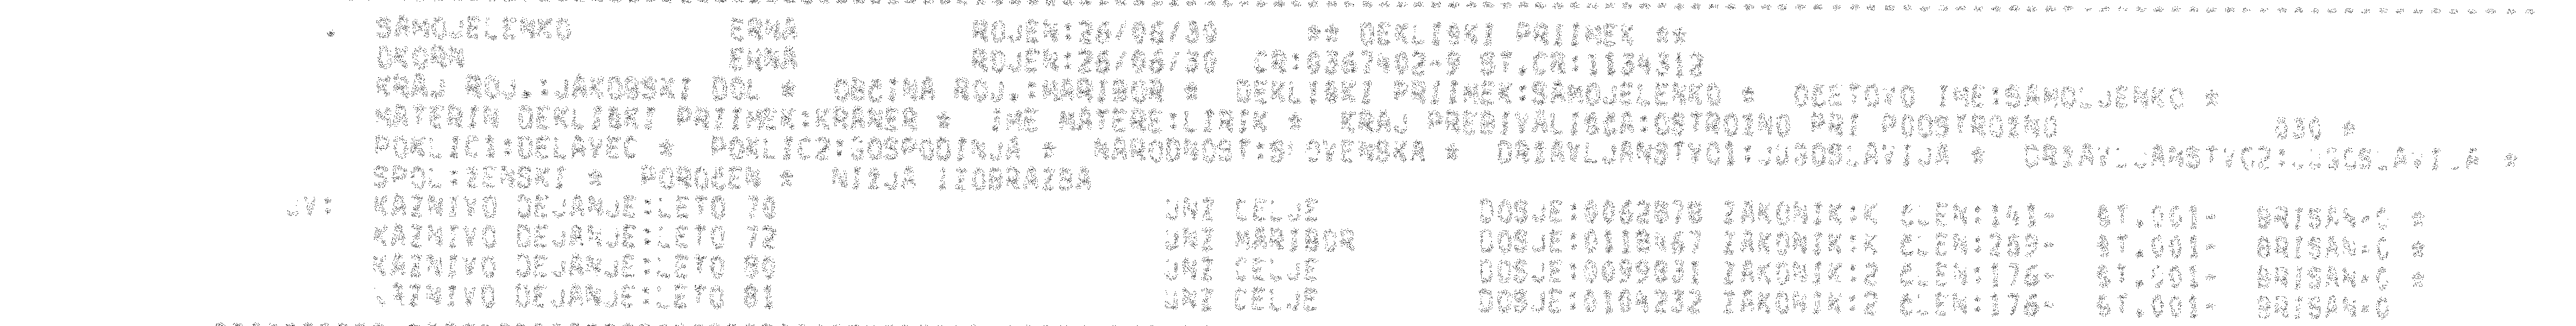 SAMOJELENKO ERNA ROJEN:26/06/30 ** DEKLISKI PRIIMEK **
ERNA ROJEN:26/06/30 CR:0367402-9 ST.CR:1134312
KRAJ ROJ.:JAKOBSKI DOL * OBCINA ROJ.:MARIBOR * DEKLISKI PRIIMEK:SAMOJELENKO * OCETOVO IME:SAMOLJENKO *
MATERIN DEKLISKI PRIIMEK:KRANER * IME MATERE: * KRAJ PREBIVALISCA:OSTROZNO PRI PODOSTROZNO 030 *
POKLIC1:DELAVEC * POKLIC2:GOSPODINJA * NARODNOST:SLOVENSKA * DRZAVLJANSTVO1:JUGOSLAVIJA * DRZAVLJANSTVO2:JUGOSLAVIJA *
SPOL:ZENSKI * POROCEN * NIZJA IZOBRAZBA
UV: KAZNIVO DEJANJE:LETO 70 UNZ CELJE DOSJE:0062878 ZAKONIK:K CLEN:141- ST.001- BRISAN-C *
KAZNIVO DEJANJE:LETO 72 UNZ MARIBOR DOSJE:0118467 ZAKONIK:K CLEN:259- ST.001- BRISAN-C *
KAZNIVO DEJANJE:LETO 80 UNZ CELJE DOSJE:0099831 ZAKONIK:2 CLEN:176- ST.001- BRISAN-C *
KAZNIVO DEJANJE:LETO 81 UNZ CELJE DOSJE:0104232 ZAKONIK:2 CLEN:176- ST.001- BRISAN-C